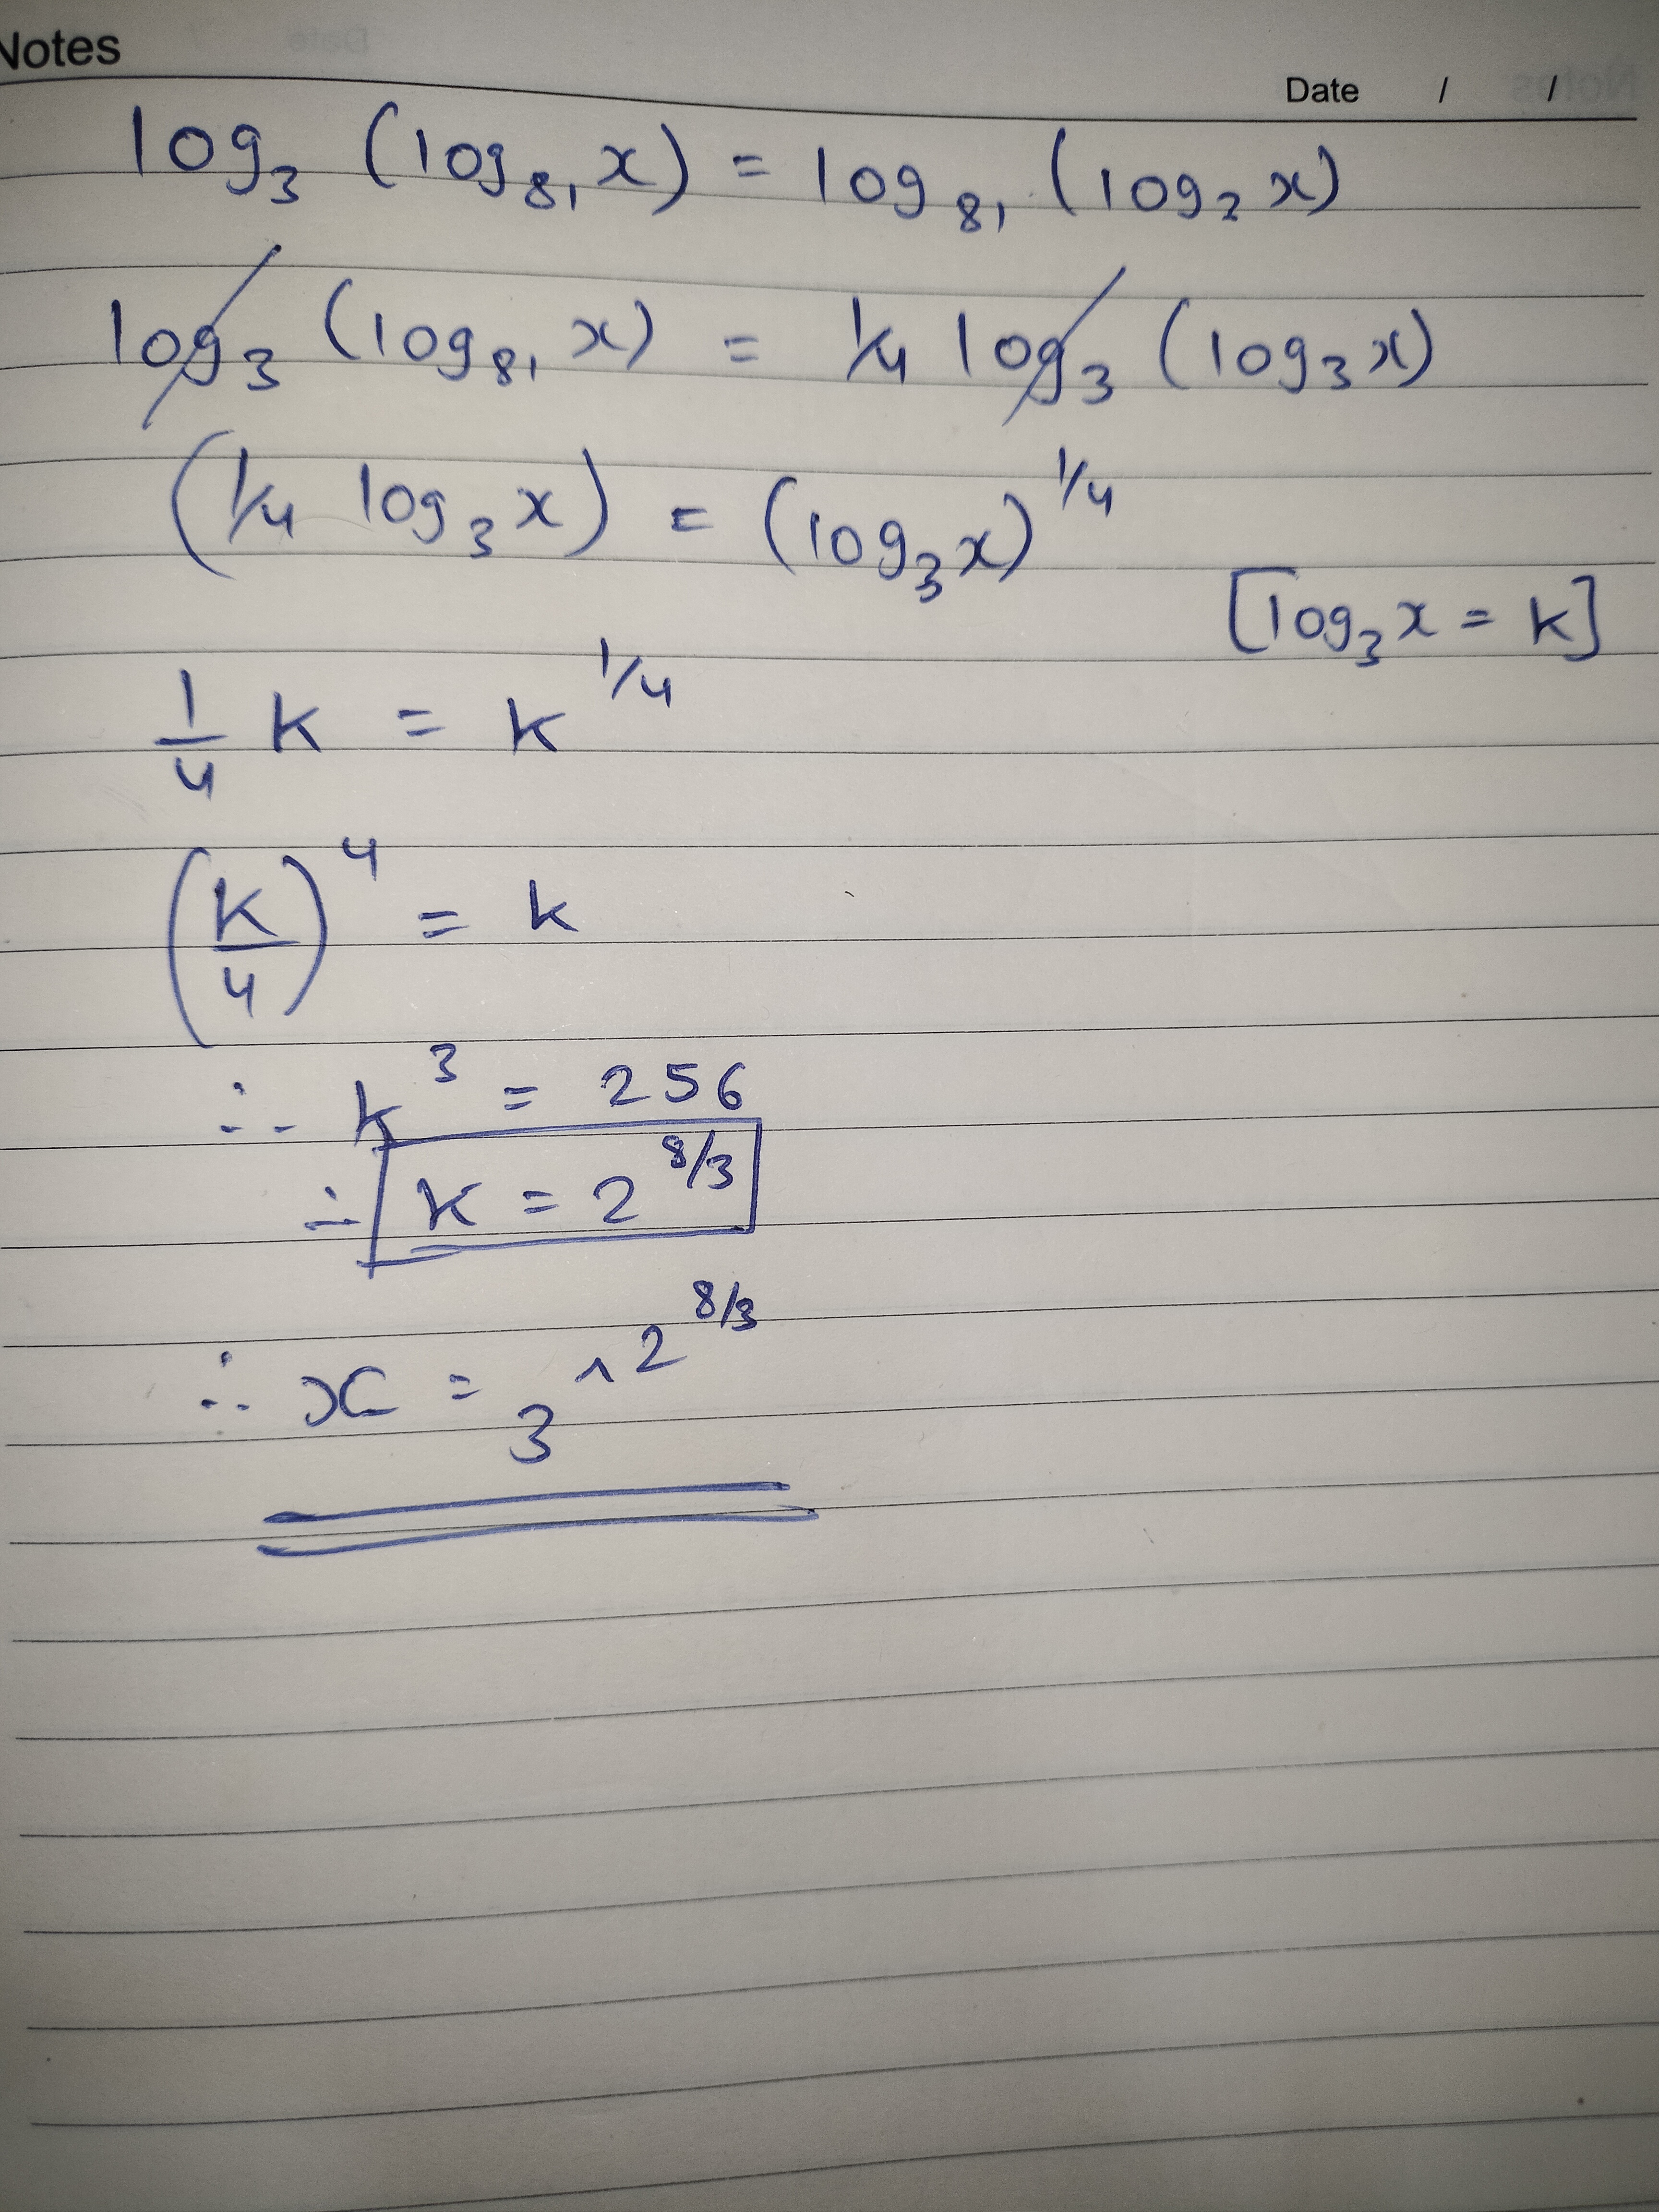 Notes
Date / /
log₃ (log₈₁ x) = log₈₁ (log₃ x)
log₃ (log₈₁ x) = 1/4 log₃ (log₃ x)
(1/4 log₃ x) = (log₃ x)^1/4
[log₃ x = k]
1/4 k = k^1/4
(k/4)^4 = k
∴ k³ = 256
∴ k = 2^8/3
∴ x = 3^2^8/3